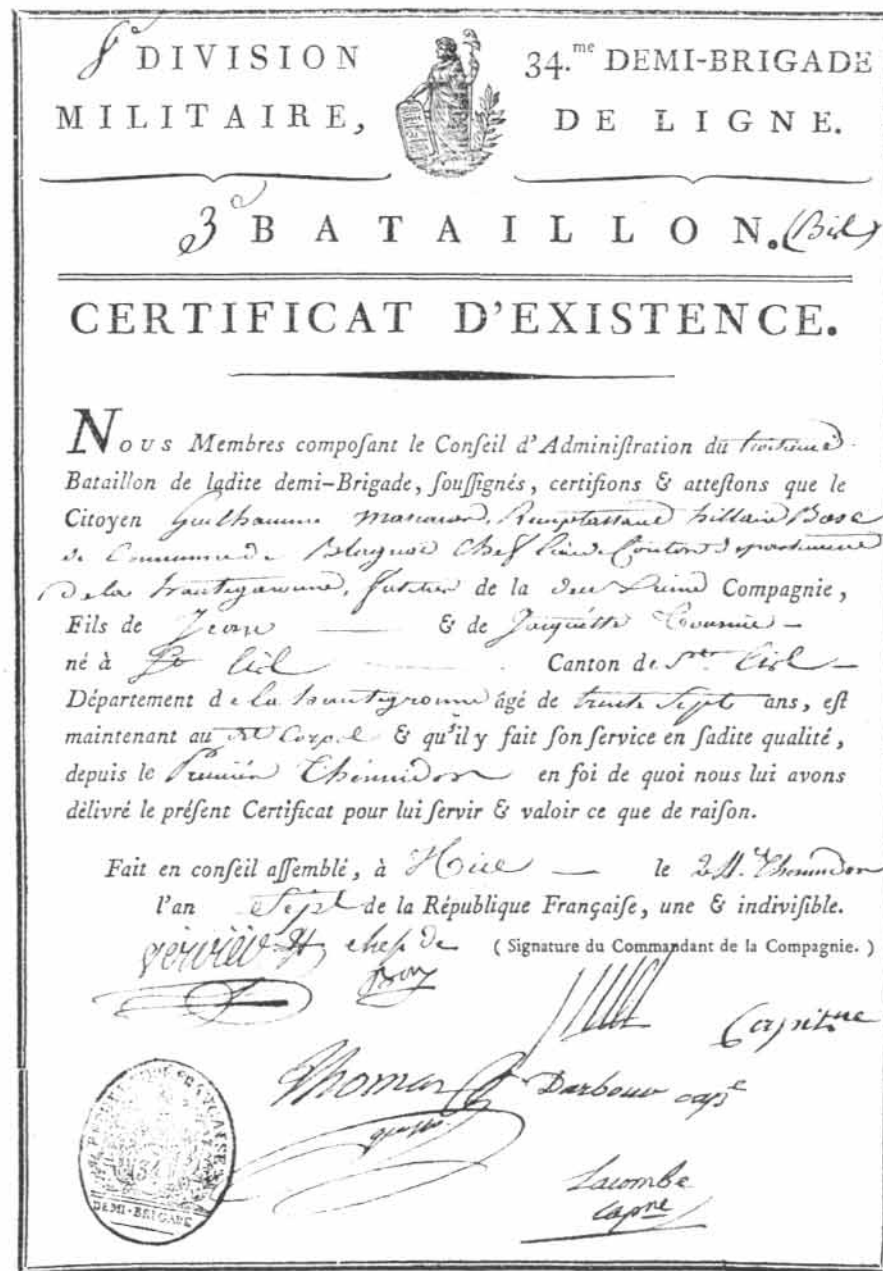 8e DIVISION
MILITAIRE,
34.me DEMI-BRIGADE
DE LIGNE.
3e BATAILLON. (Bis)
CERTIFICAT D'EXISTENCE.
Nous Membres compoſant le Conſeil d'Adminiſtration du troisieme
Bataillon de ladite demi-Brigade, ſouſſignés, certifions & atteſtons que le
Citoyen Guilhaume Remplassant hillaire Bosc
de Commune de Blagnac Chef lieu de Canton departement
De la hautegaronne, de la deuxieme Compagnie,
Fils de Jean & de Jacquette
né à St Cirl Canton de St Cirl
Département de la hautegaronne âgé de trente Sept ans, eſt
maintenant au dit Corps & qu'il y fait ſon ſervice en ſadite qualité,
depuis le Premier Thermidor en foi de quoi nous lui avons
délivré le préſent Certificat pour lui ſervir & valoir ce que de raiſon.
Fait en conſeil aſſemblé, à Nice le 24. Thermidor
l'an Sept de la République Françaiſe, une & indiviſible.
chef de (Signature du Commandant de la Compagnie.)
Capitne
Thomas Darbouw cape
RÉPUBLIQUE FRANÇAISE
34
DEMI-BRIGADE
Lacombe
capne